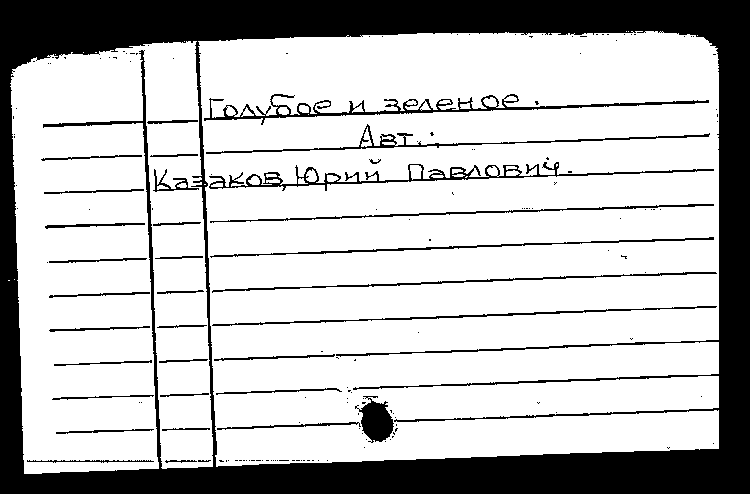 Голубое и зеленое.
Авт.:
Казаков, Юрий Павлович.